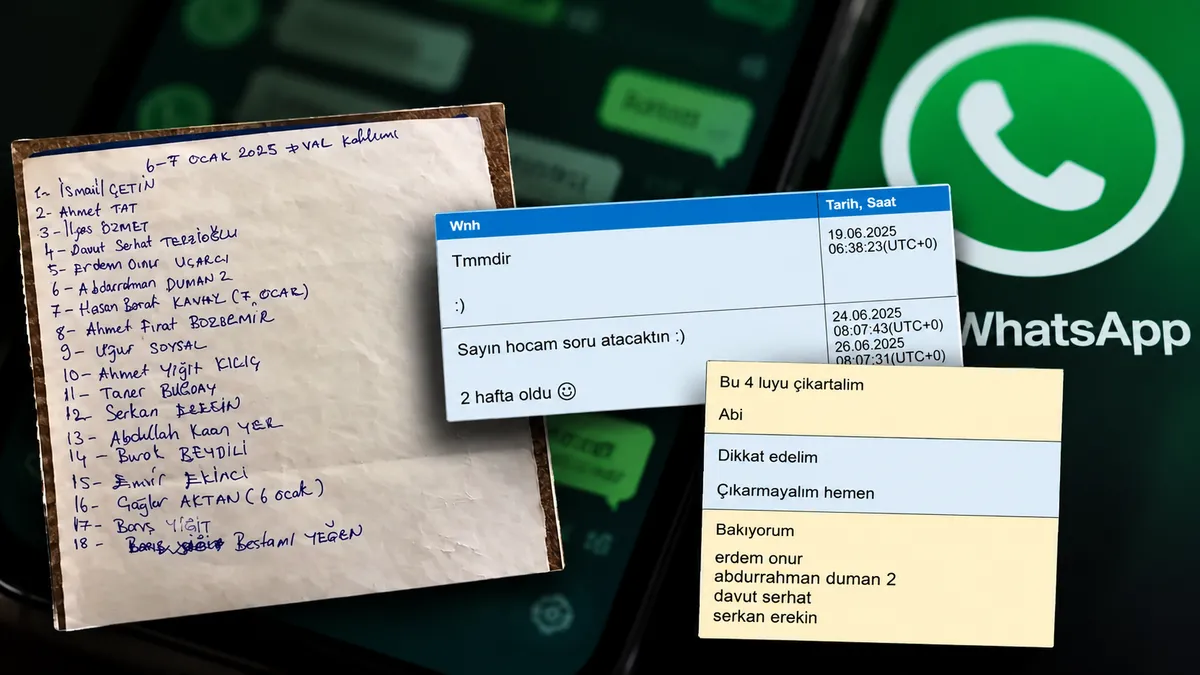 6-7 OCAK 2025 DVAL Katılımı
1- İsmail ÇETİN
2- Ahmet TAT
3- İlyas ÖZMET
4- Davut Serhat TERZİOĞLU
5- Erdem Onur UÇARCI
6- Abdurrahman DUMAN 2
7- Hasan Berat KAVAY (7 OCAK)
8- Ahmet Fırat BOZDEMİR
9- Uğur SOYSAL
10- Ahmet Yiğit KILIÇ
11- Taner BUĞDAY
12- Serkan EREKİN
13- Abdullah Kaan YER
14- Burak BEYDİLİ
15- Emir EKİNCİ
16- Çağlar AKTAN (6 ocak)
17- Barış YİĞİT
18- Bestami YEĞEN
Wnh Tarih, Saat
Tmmdir 19.06.2025
06:38:23(UTC+0)
:)
Sayın hocam soru atacaktın :) 24.06.2025
08:07:43(UTC+0)
2 hafta oldu ☺ 26.06.2025
08:07:31(UTC+0)
Bu 4 luyu çikartalim
Abi
Dikkat edelim
Çıkarmayalım hemen
Bakıyorum
erdem onur
abdurrahman duman 2
davut serhat
serkan erekin
WhatsApp